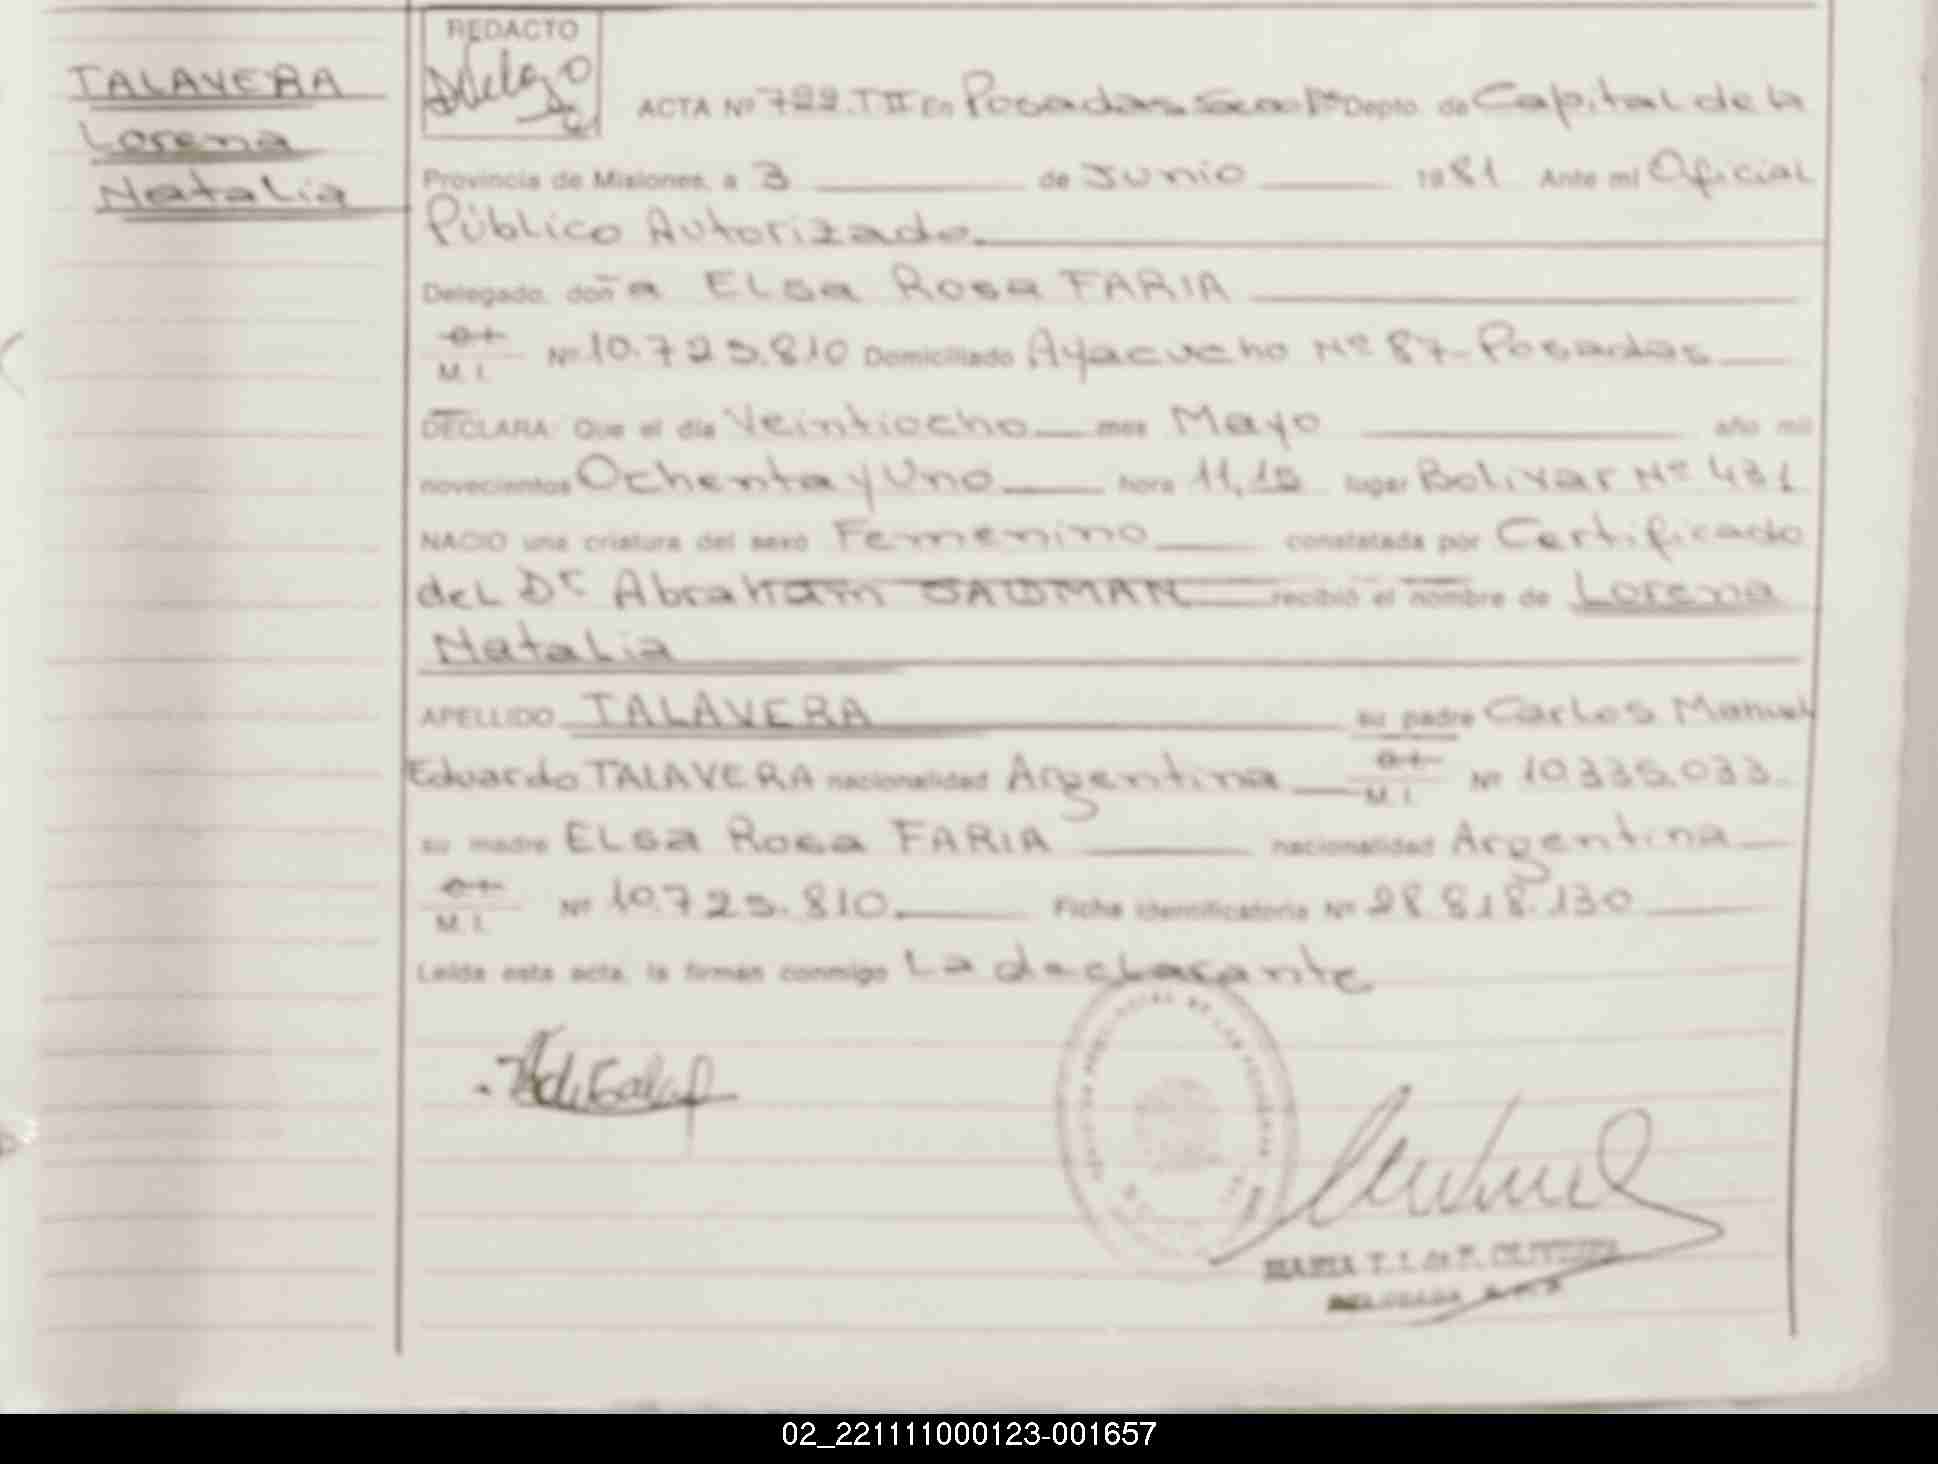 TALAVERA
Lorena
Natalia
REDACTO
ACTA Nº 722.T II En Posadas Secc 1ª Depto. de Capital de la
Provincia de Misiones, a 3 de Junio 1981 Ante mi Oficial
Público Autorizado.
Delegado, doña ELsa Rosa FARIA
M. I. Nº 10.725.810 Domiciliado Ayacucho Nº 87-Posadas
DECLARA: Que el día Veintiocho mes Mayo año mil
novecientos Ochenta y Uno hora 11,15 lugar Bolivar Nº 431
NACIO una criatura del sexo Femenino constatada por Certificado
del Dr Abraham recibió el nombre de Lorena
Natalia
APELLIDO TALAVERA su padre Carlos Manuel
Eduardo TALAVERA nacionalidad Argentina M. I. Nº 10.335.033
su madre ELsa Rosa FARIA nacionalidad Argentina
M. I. Nº 10.725.810 Ficha identificatoria Nº 28.818.130
Leída esta acta, la firman conmigo La declarante
MARIA T. I. de F.
02_221111000123-001657